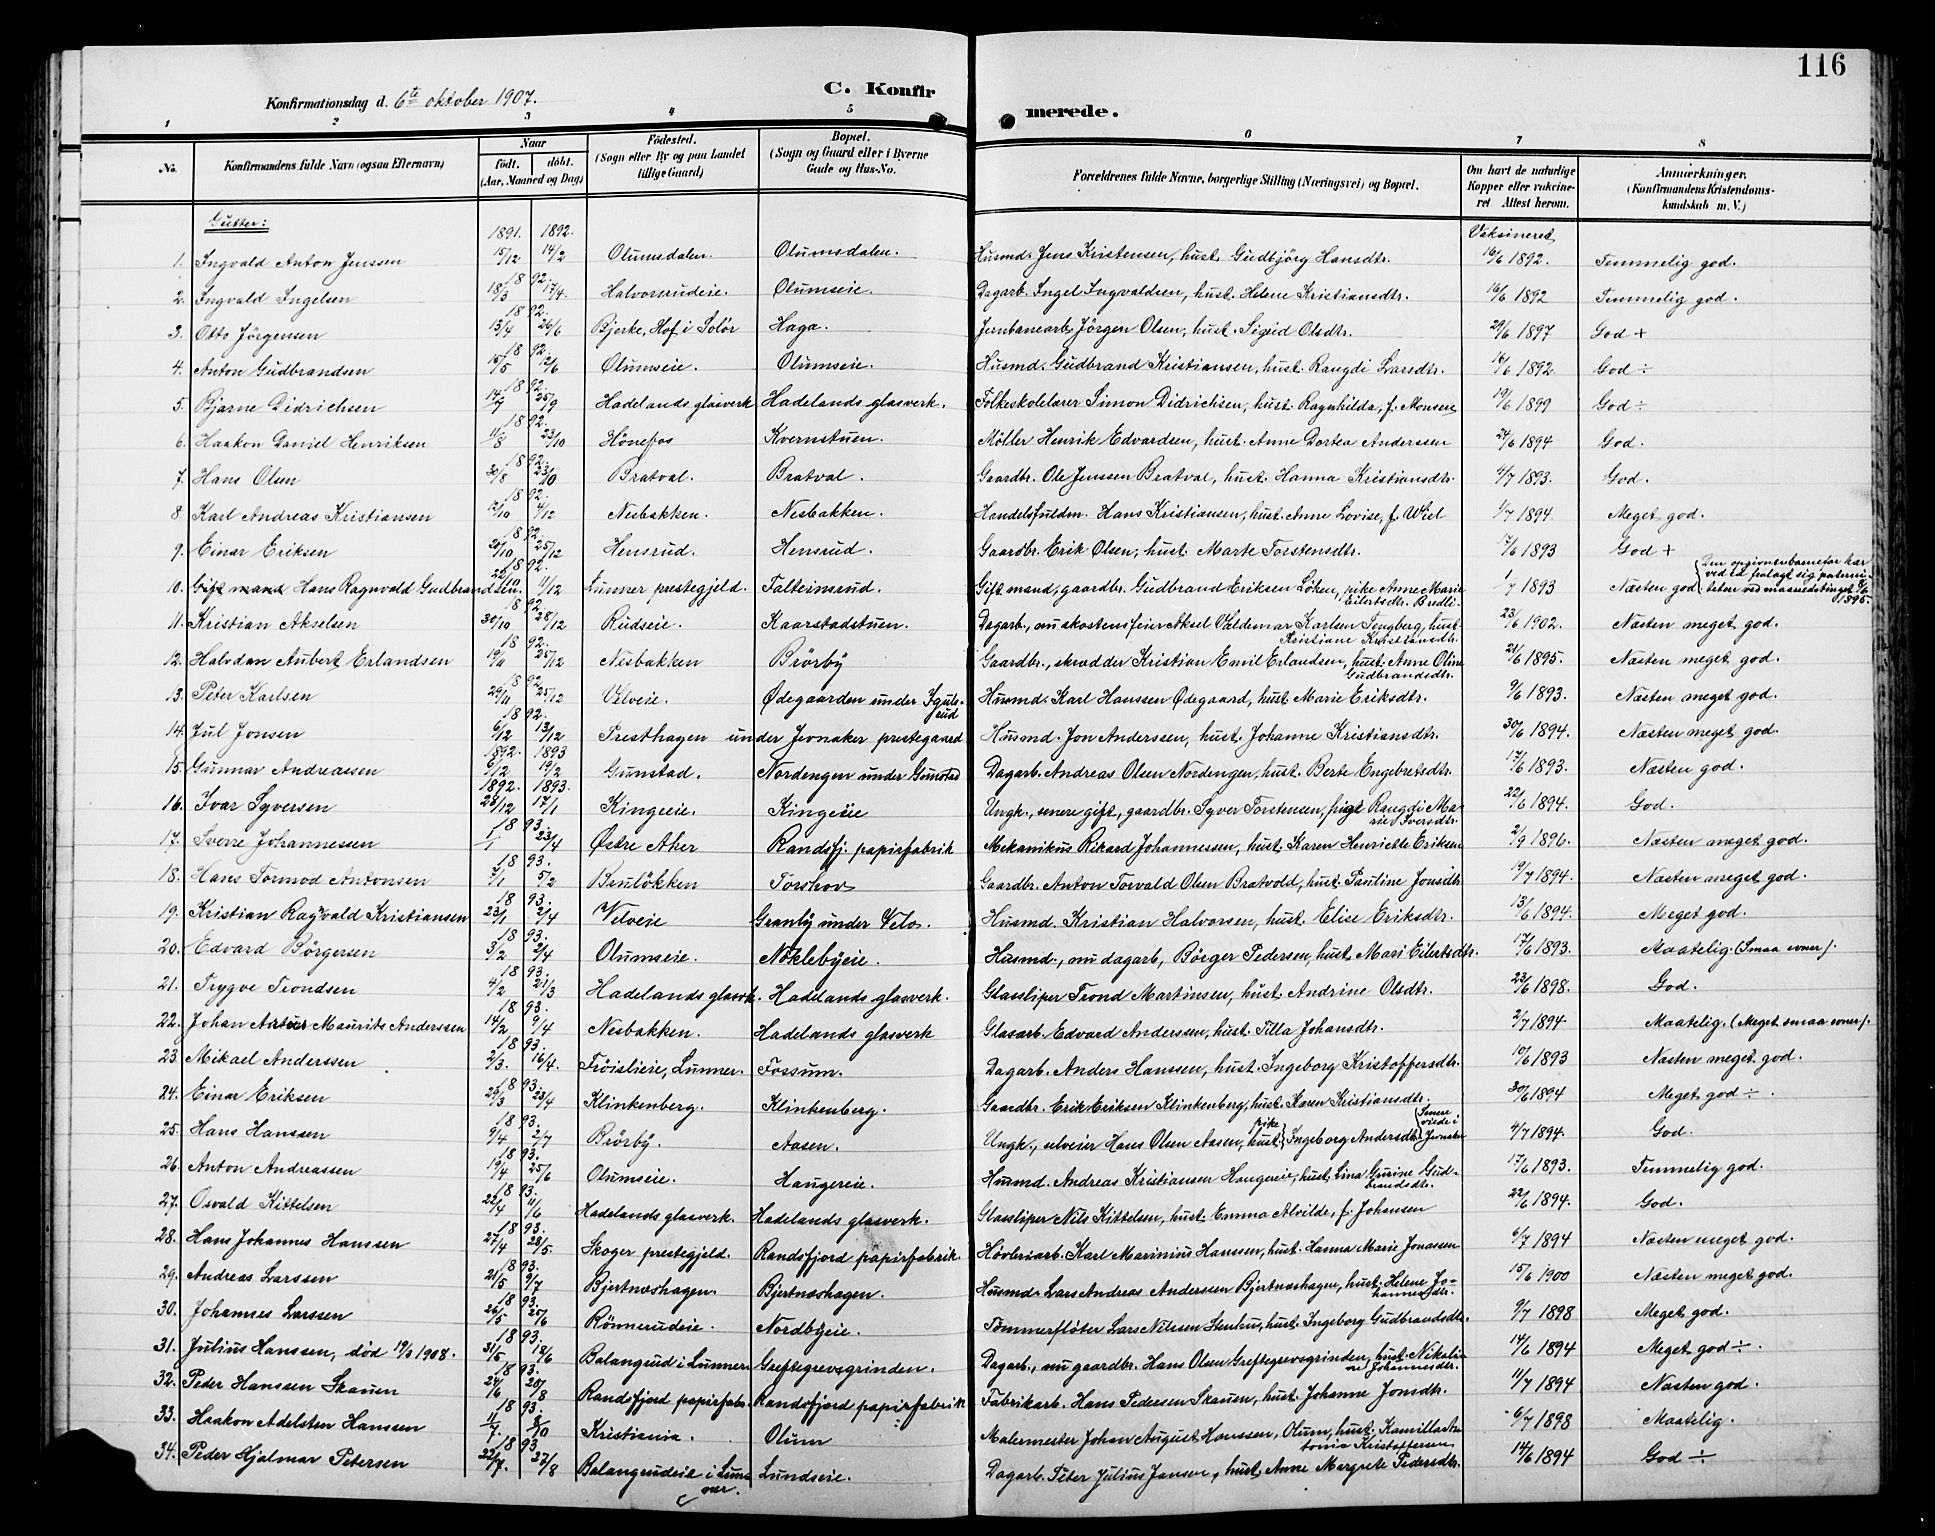 116
Konfirmationsdag d. 6te oktober 1907.
C. Konfir
merede.
1 2 3 4 5 6 7 8
No.
Konfirmandens fulde Navn (ogsaa Efternavn)
Naar
født. døbt.
(Aar, Maaned og Dag)
Fødested.
(Sogn eller By og paa Landet
tillige Gaard)
Bopæl.
(Sogn og Gaard eller i Byerne
Gade og Hus-No.
Forældrenes fulde Navne, borgerlige Stilling (Næringsvei) og Bopæl.
Om havt de naturlige
Kopper eller vakcine-
ret Attest herom.
Anmærkninger.
(Konfirmandens Kristendoms-
kundskab m. V.)
Gutter:
1891. 1892. Vaksineret
1. Ingvald Anton Jenssen 15/12 14/2 Olumsdalen. Olumsdalen. Husmd. Jens Kristensen, hust. Gudbjörg Hansdtr. 16/6 1892. Temmelig god.
1892.
2. Ingvald Ingelsen 18/3 17/4. Halvorsrudeie. Olumseie. Dagarb. Ingel Ingvaldsen, hust. Helene Kristiansdtr. 16/6 1892 Temmelig god.
1892.
3. Otto Jörgensen 13/4 26/6 Bjerke, Hof i Solör Haga. Jernbanearb. Jörgen Olsen, hust. Sigrid Olsdtr. 29/6 1897 God +
1892.
4. Anton Gudbrandsen 15/5 12/6 Olumseie. Olumseie. Husmd. Gudbrand Kristiansen, hust. Rangdi Larsdtr. 16/6 1892. God ÷
1892.
5. Bjarne Didrichsen 14/7 25/9 Hadelands glasverk Hadelands glasverk. Folkeskolelærer Simon Didrichsen, hust. Ragnhilda, f. Monsen 19/6 1899 God ÷
1892.
6. Haakon Daniel Henriksen 11/8 23/10 Hönefos Kvernstuen. Möller Henrik Edvardsen, hust. Anne Dortea Andersen 24/6 1894 God.
1892.
7. Hans Olsen 30/8 23/10 Bratval. Bratval. Gaardbr. Ole Jenssen Bratval, hust. Hanna Kristiansdtr. 4/7 1893. God.
1892.
8. Karl Andreas Kristiansen 12/10 4/12 Nesbakken. Nesbakken. Handelsfuldm. Hans Kristiansen, hust. Anne Lovise, f. Wiel 1/7 1894 Meget god.
1892.
9. Einar Eriksen 20/10 25/12 Hensrud. Hensrud. Gaardbr. Erik Olsen, hust. Marte Torstensdtr. 17/6 1893 God +
1892.
10. Gift mand Hans Ragnvald Gudbrandsen. 22/10 11/12 Lunner prestegjeld. Falteinsrud. Gift mand, gaardbr. Gudbrand Eriksen Löken, pike Anne Marie
Eilertsdtr. 1/7 1893 Næsten god
1895.
1892.
11. Kristian Akselsen 30/10 28/12 Rudseie. Kaarstadstuen. Dagarb., nu skostensfeier Aksel Valdemar Karlsen Sengberg, hust.
Kristiane Kristiansdtr. 23/6 1902. Næsten meget god.
1892.
12. Halvdan Aubert Erlandsen 19/11 25/12 Nesbakken Brörby Gaardbr., skrædder Kristian Emil Erlandsen, hust. Anne Oline
Gudbrandsdtr. 21/6 1895. Næsten meget god.
1892.
13. Peter Karlsen 29/11 25/12 Velveie. Ødegaarden under Iguls-
rud Husmd. Karl Hanssen Ødegaard, hust. Marie Eriksdtr. 9/6 1893. Næsten meget god.
1892.
14. Jul Jonsen 6/12 13/12 Presthagen under Jevnaker prestegaard Husmd. Jon Anderssen, hust. Johanne Kristiansdtr. 30/6 1894. Næsten meget god.
1892. 1893
15. Gunnar Andreassen 6/12 19/2 Gunstad. Nordengen under Gunstad Dagarb. Andreas Olsen Nordengen, hust. Berte Engebretsdtr. 17/6 1893. Næsten god.
1892. 1893.
16. Ivar Syversen 23/12 17/1 Kingeeie. Kingeeie Ungk., senere gift, gaardbr. Syver Torstensen, pige Rangdi Ma-
rie Iversdtr. 22/6 1894. God.
1893.
17. Sverre Johannessen 1/1 23/4 Østre Aker Randsfj. papirfabrik Mekanikus Rikard Johannessen, hust. Karen Henriette Eriksen 2/9 1896. Næsten meget god.
1893.
18. Hans Tormod Antonsen 7/1 5/2 Bruløkken Torshov Gaardbr. Anton Torvald Olsen Bratvold, hust. Pauline Jonsdtr. 19/7 1894. Næsten meget god.
1893.
19. Kristian Ragnvald Kristiansen 23/1 2/4 Velveie Granly under Velo. Husmd. Kristian Halvorsen, hust. Elise Eriksdtr. 13/6 1894. Meget god.
1893.
20. Edvard Börgersen 3/2 2/4 Olumseie. Nöklebyeie. Husmd., nu dagarb., Börger Pedersen, hust. Mari Eilertsdtr. 17/6 1893. Maatelig. (Smaa evner).
1893.
21. Trygve Trondsen 4/2 21/3 Hadelands glasvk. Hadelands glasverk. Glassliper Trond Martinsen, hust. Andrine Olsdtr. 23/6 1898. God.
1893.
22. Johan Artur Maurits Anderssen 14/2 9/4 Nesbakken. Hadelands glasverk Glasarb. Edvard Andersen, hust. Tilla Johansdtr. 2/7 1894. Maatelig. (Meget smaa evner).
1893.
23. Mikael Anderssen 2/3. 16/4. Fröislieie, Lunner. Fossum. Dagarb. Anders Hanssen, hust. Ingeborg Kristoffersdtr. 10/6 1893 Næsten meget god.
1893.
24. Einar Eriksen 29/3 23/4 Klinkenberg. Klinkenberg. Gaardbr. Erik Eriksen Klinkenberg, hust. Karen Kristiansdtr. 30/6 1894 Meget god ÷.
1893.
25. Hans Hanssen 9/4 2/7 Brörby. Aasen. Ungk., selveier Hans Olsen Aasen, hust. Pike Ingeborg Andersdtr. 4/7 1894. God.
1893.
26. Anton Andreassen 19/4 25/6 Olumseie. Haugereie. Husmd. Andreas Kristiansen Haugereie, hust. Lina Gurine Gud-
brandsdtr. 17/6 1893. Temmelig god.
1893.
27. Osvald Kittelsen 22/4 11/6 Hadelands glasverk. Hadelands glasverk. Glassliper Nils Kittelsen, hust. Emma Alvilde, f. Johansen 22/6 1894. God.
1893.
28. Hans Johannes Hanssen 27/4 28/5. Skoger prestegjeld. Randsfjord papirfabrik Hövleriarb. Karl Marinius Hanssen, hust. Hanna Marie Jonassen 6/7 1894 Næsten meget god.
1893.
29. Andreas Larssen 21/5 9/7 Bjertnæshagen. Bjertnæshagen. Husmd. Lars Andreas Anderssen Bjertnæshagen, hust. Helene Jo-
hannesdtr. 15/6 1900 Næsten meget god.
1893.
30. Johannes Larssen 26/5 25/6 Rönnerudeie. Nordbyeie. Tömmerflöter Lars Nilssen Stenhus, hust. Ingeborg Gudbrandsdtr. 9/7 1898 Meget god.
1893.
31. Julius Hanssen, död 19/3 1908. 31/5 18/6 Balangrud i Lunner Greftegrevsgrinden. Dagarb., nu gaardbr. Hans Olsen Greftegrevsgrinden, hust. Nikoli-
ne Johannesdtr. 14/6 1894 Meget god ÷.
1893.
32. Peder Hanssen Skauen 24/6 20/8 Randsfjord papirfabr. Randsfjord papirfabrik Fabrikarb. Hans Pedersen Skauen, hust. Johanne Jonsdtr. 11/7 1894 Næsten god.
1893.
33. Haakon Adelsten Hanssen 11/7. 8/10 Kristiania. Olum Malermester Johan August Hanssen, Olum, hust. Kamilla An-
tonia Kristoffersen 6/7 1898 Maatelig.
1893.
34. Peder Hjalmar Petersen 22/7. 27/8 Balangrudeie i Lun-
ner. Lundseie. Dagarb. Peter Julius Jansen, hust. Anne Margrete Pedersdtr. 14/6 1894 God ÷